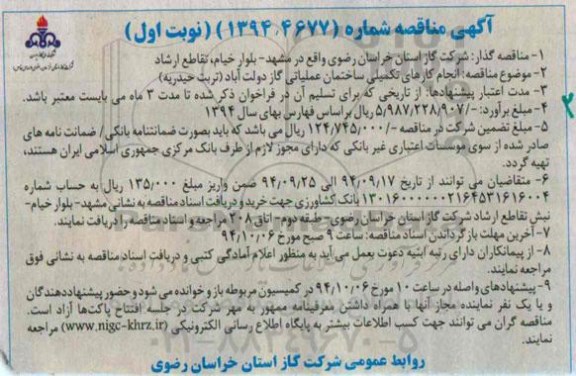 آگهی مناقصه شماره (۱۳۹۴،۴۶۷۷) (نوبت اول)
۱- مناقصه گذار: شرکت گاز استان خراسان رضوی واقع در مشهد- بلوار خیام، تقاطع ارشاد
۲- موضوع مناقصه: انجام کارهای تکمیلی ساختمان عملیاتی گاز دولت آباد (تربت حیدریه)
۳- مدت اعتبار پیشنهادها: از تاریخی که برای تسلیم آن در فراخوان ذکر شده تا مدت ۳ ماه می بایست معتبر باشد.
۴- مبلغ برآورد: -/۵/۹۸۷/۲۲۸/۹۰۷ ریال بر اساس فهارس بهای سال ۱۳۹۴
۵- مبلغ تضمین شرکت در مناقصه -/۱۲۴/۷۴۵/۰۰۰ ریال می باشد که باید بصورت ضمانتنامه بانکی/ ضمانت نامه های
صادر شده از سوی موسسات اعتباری غیر بانکی که دارای مجوز لازم از طرف بانک مرکزی جمهوری اسلامی ایران هستند،
تهیه گردد.
۶- متقاضیان می توانند از تاریخ ۹۴/۰۹/۱۷ الی ۹۴/۰۹/۲۵ ضمن واریز مبلغ ۱۳۵/۰۰۰ ریال به حساب شماره
۱۳۰۱۶۰۰۰۰۰۰۲۱۶۴۵۳۱۶۱۶۰۰۴ بانک کشاورزی جهت خرید و دریافت اسناد مناقصه به نشانی مشهد- بلوار خیام-
نبش تقاطع ارشاد شرکت گاز استان خراسان رضوی- طبقه دوم- اتاق ۲۰۸ مراجعه و اسناد مناقصه را دریافت نمایند.
۷- آخرین مهلت بازگرداندن اسناد مناقصه: ساعت ۹ صبح مورخ ۹۴/۱۰/۰۶
۸- از پیمانکاران دارای رتبه ابنیه دعوت بعمل می آید به منظور اعلام آمادگی کتبی و دریافت اسناد مناقصه به نشانی فوق
مراجعه نمایند.
۹- پیشنهادهای واصله در ساعت ۱۰ مورخ ۹۴/۱۰/۰۶ در کمیسیون مربوطه باز و خوانده می شود و حضور پیشنهاددهندگان
و یا یک نفر نماینده مجاز آنها با همراه داشتن معرفینامه ممهور به مهر شرکت در جلسه افتتاح پاکت‌ها آزاد است.
مناقصه گران می توانند جهت کسب اطلاعات بیشتر به پایگاه اطلاع رسانی الکترونیکی (www.nigc-khrz.ir) مراجعه
نمایند.
روابط عمومی شرکت گاز استان خراسان رضوی